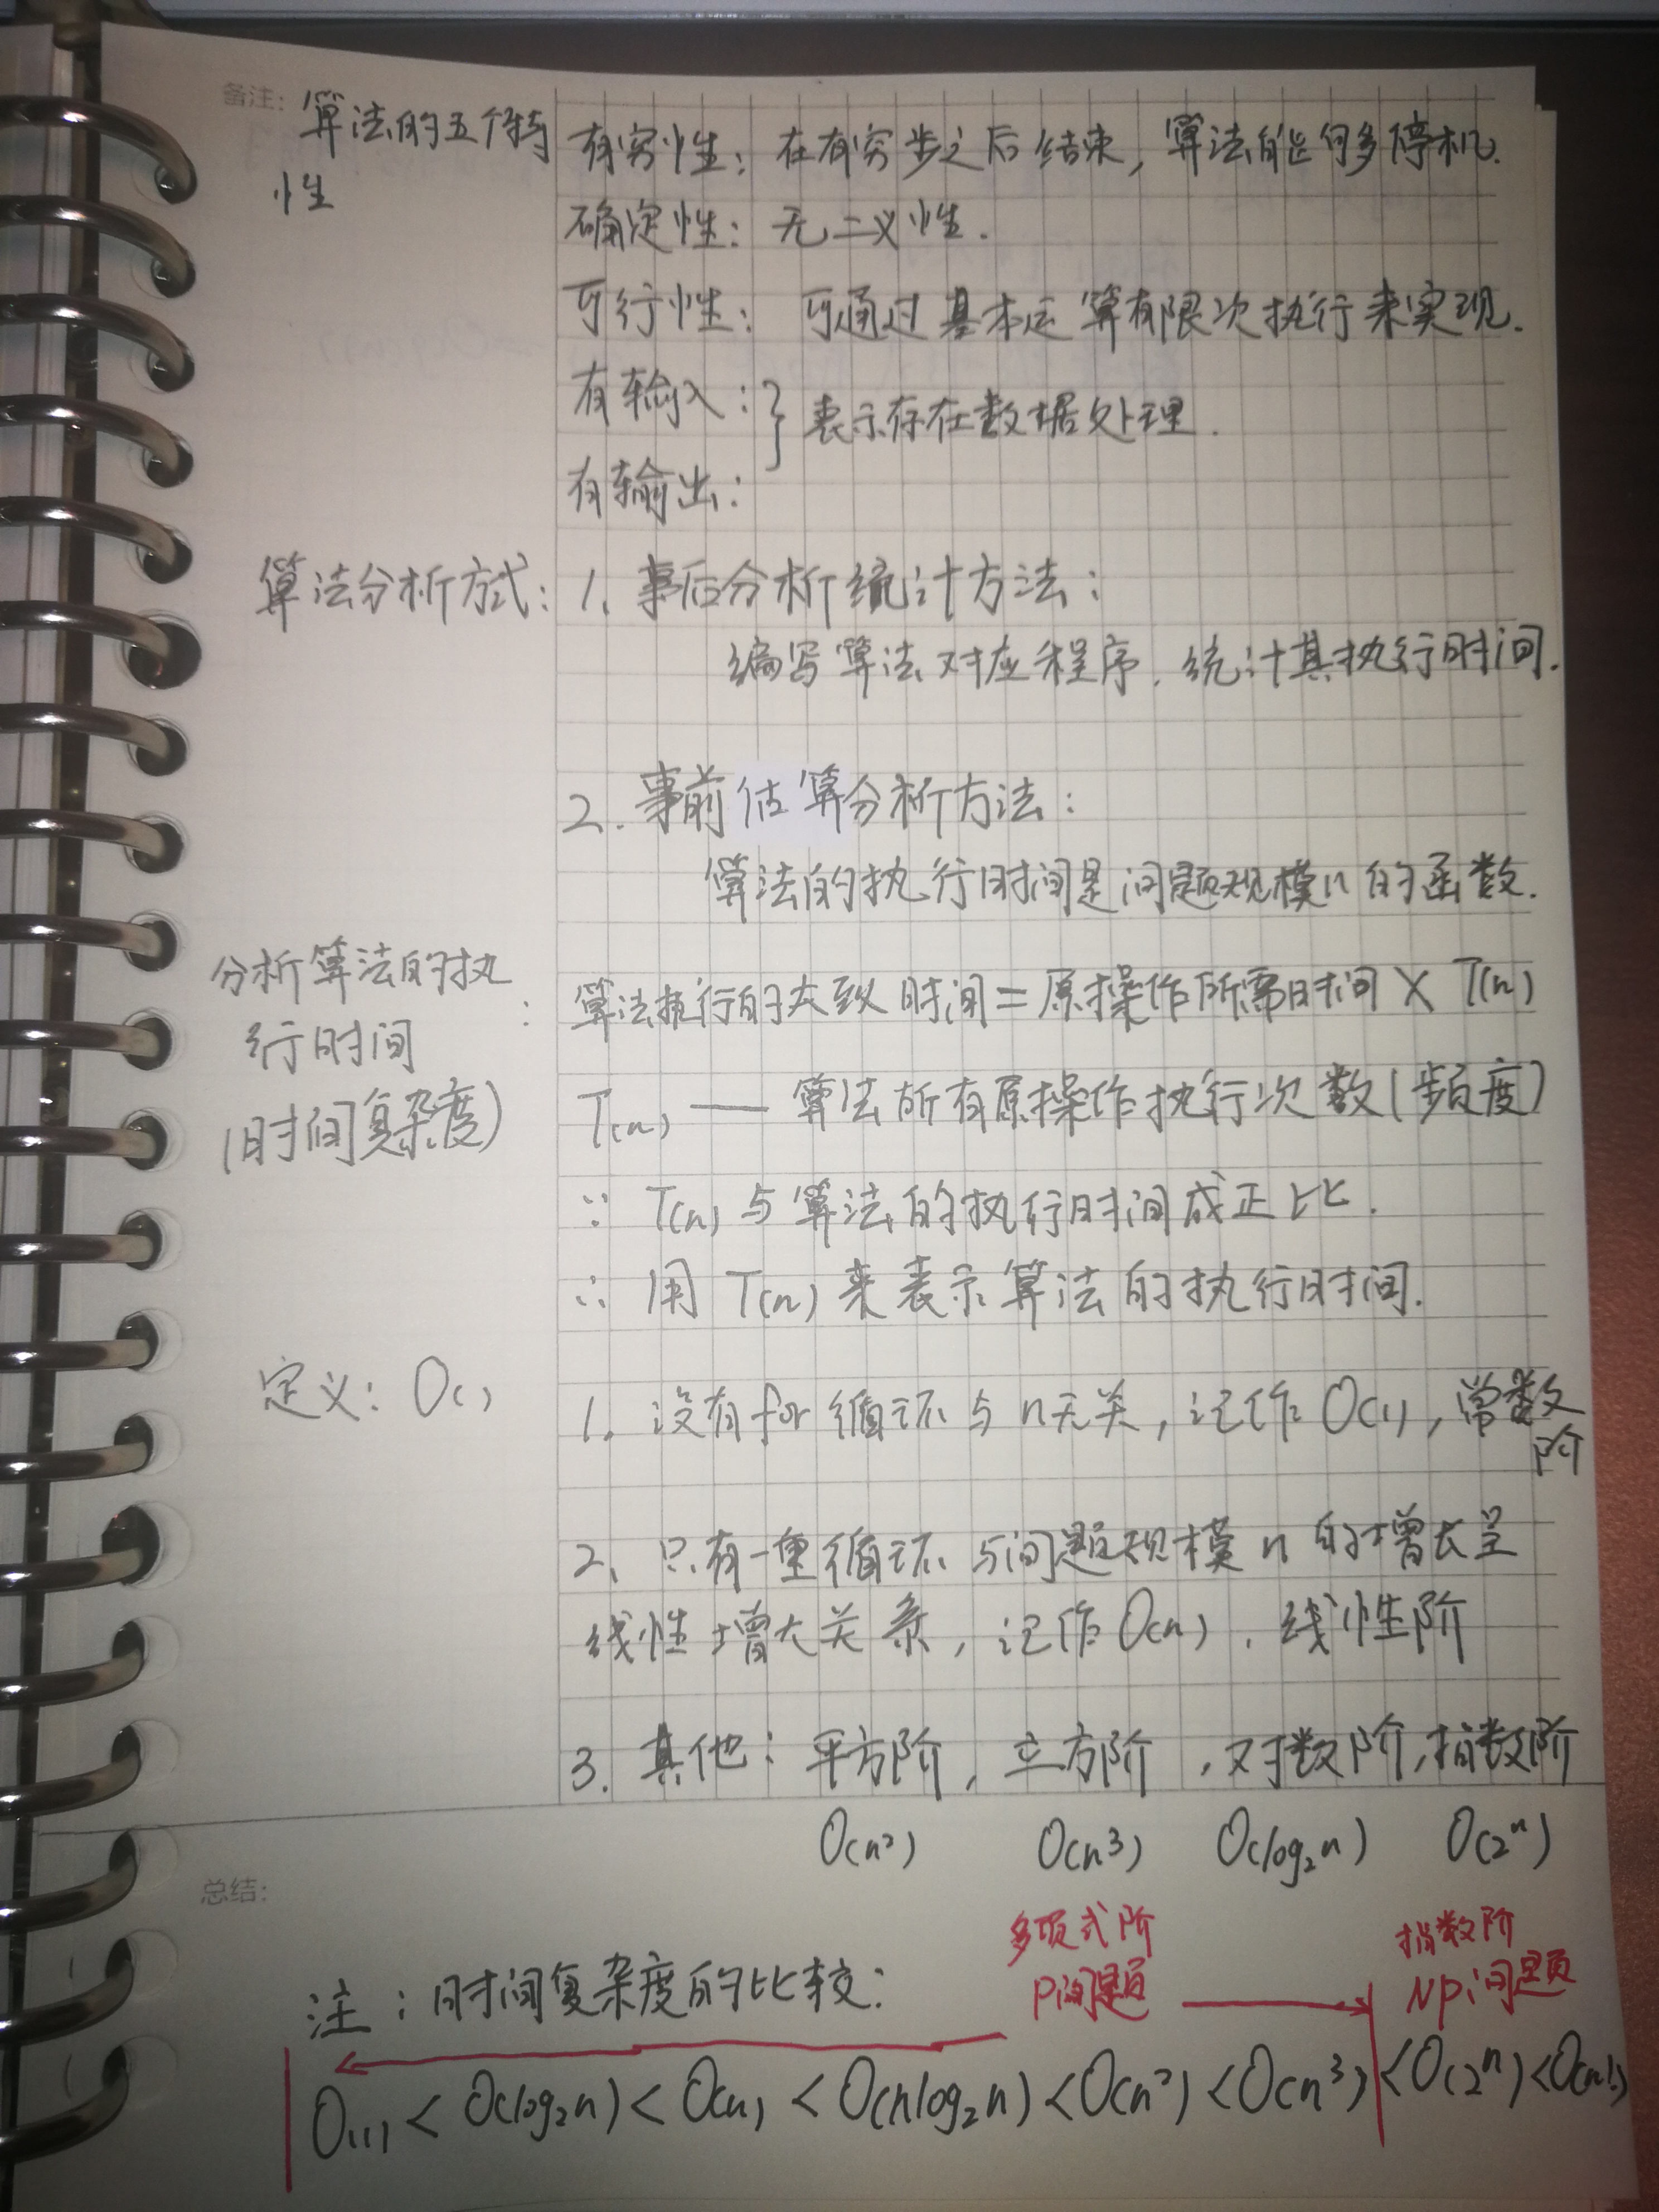 备注：
算法的五个特性
有穷性：在有穷步之后结束，算法能够停机.
确定性：无二义性.
可行性：可通过基本运算有限次执行来实现.
有输入：} 表示存在数据处理.
有输出：
算法分析方式：1. 事后分析统计方法：
编写算法对应程序，统计其执行时间.
2. 事前估算分析方法：
算法的执行时间是问题规模n的函数.
分析算法的执行时间（时间复杂度）：
算法执行的大致时间=原操作所需时间×T(n)
T(n) — 算法所有原操作执行次数(频度)
∵ T(n)与算法的执行时间成正比.
∴ 用T(n)来表示算法的执行时间.
定义：O()
1. 没有for循环与n无关，记作O(1)，常数阶
2、只有一重循环与问题规模n的增长呈
线性增大关系，记作O(n)，线性阶
3. 其他：平方阶，立方阶，对数阶，指数阶
O(n²) O(n³) O(log₂n) O(2ⁿ)
总结：
多项式阶
P问题
指数阶
NP问题
注：时间复杂度的比较：
O(1)<O(log₂n)<O(n)<O(nlog₂n)<O(n²)<O(n³)<O(2ⁿ)<O(n!)